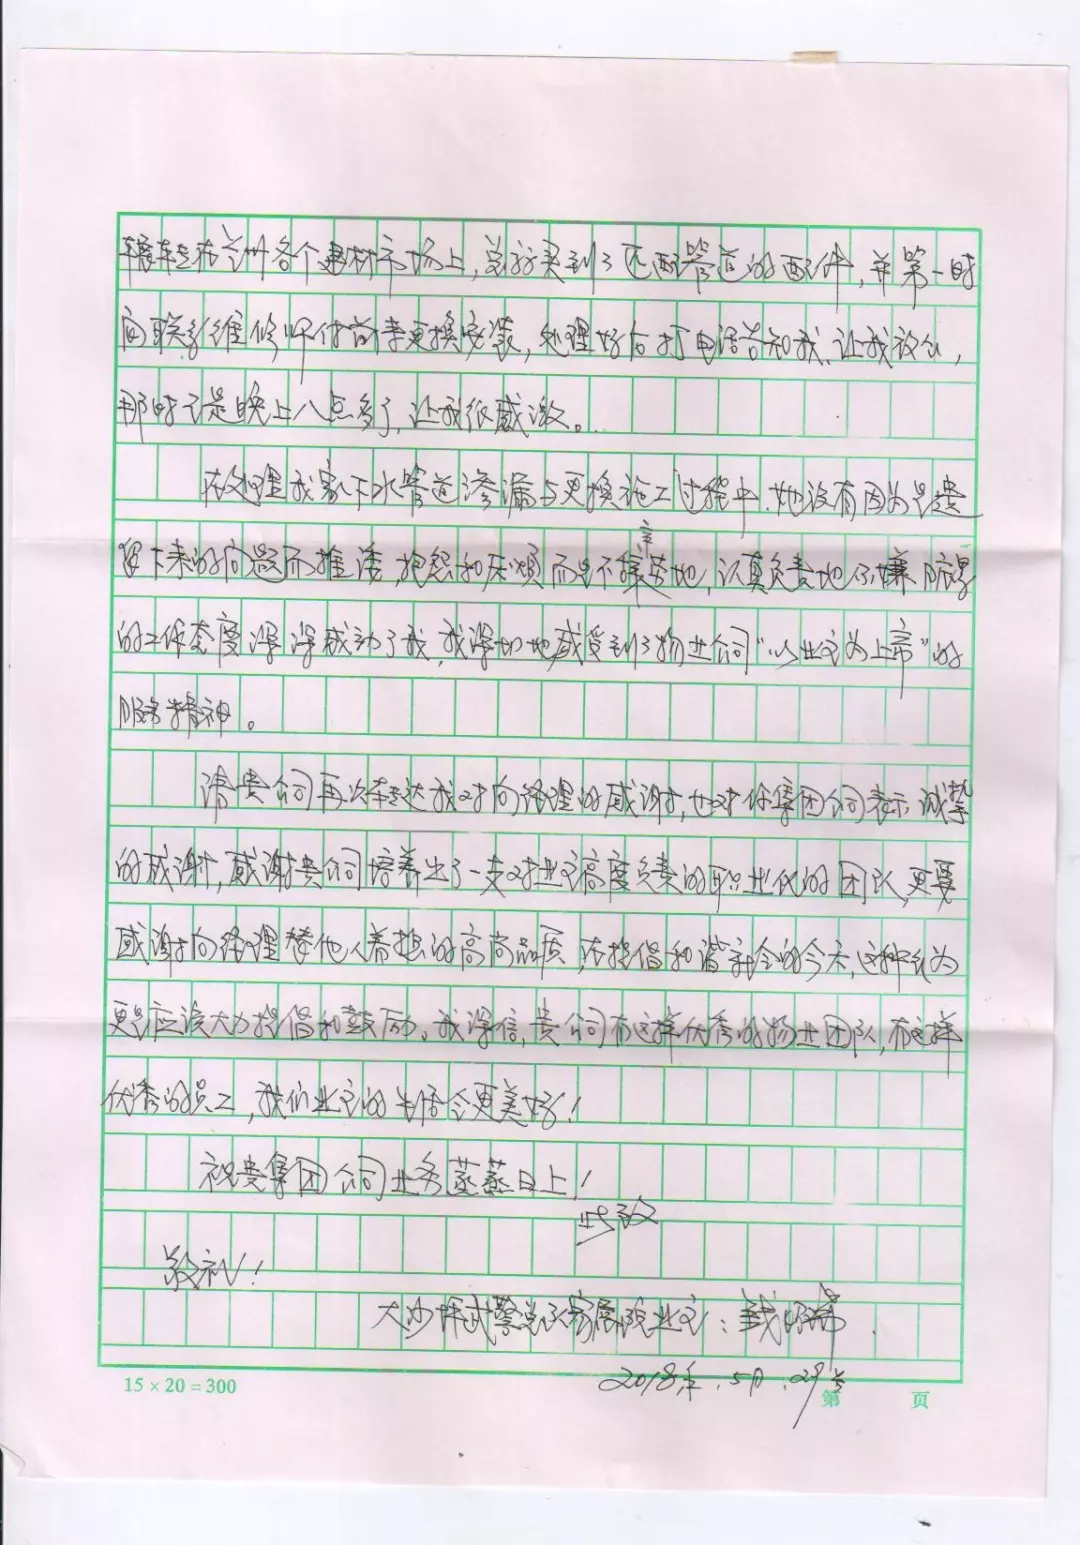 辗转在兰州各个建材市场上，总算买到了匹配管道的配件，并第一时
间联系维修师付前来更换安装，处理好后打电话告知我、让我放心，
那时已是晚上八点多了，让我很感激。
在处理我家下水管道渗漏与更换施工过程中、她没有因为是遗
留下来的问题而推诿、抱怨和厌烦而是不辞辛劳地，认真负责地不嫌
的工作态度深深感动了我，我深切地感受到了物业公司“以业主为上帝”的
服务精神。
请贵公司再次转达我对向经理的感谢，也对你集团公司表示诚挚
的感谢，感谢贵公司培养出了一支对业主高度负责的职业化的团队，更要
感谢向经理替他人着想的高尚品质，在提倡和谐社会的今天，这种行为
更是应该大力提倡和鼓励。我深信，贵公司有这样优秀的物业团队，有这样
优秀的员工，我们业主的生活会更美好！
祝贵集团公司业务蒸蒸日上！
此致
敬礼！
大沙坪武警总队家属院业主：钱
2018年.5月.29号
15×20=300
第 页